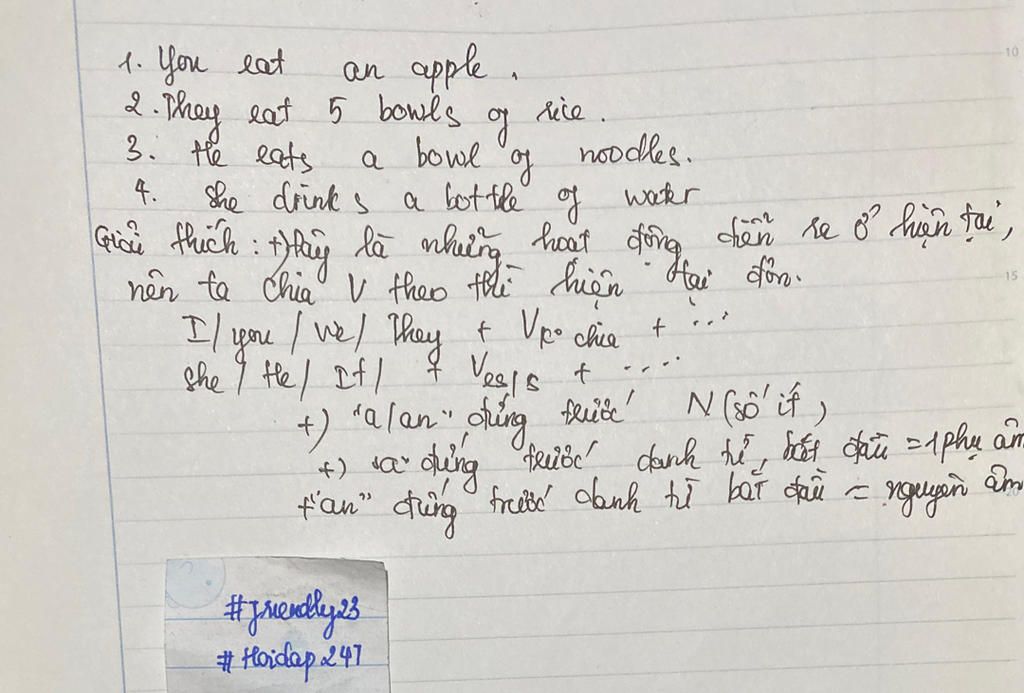 1. You eat an apple.
2. They eat 5 bowls of rice.
3. He eats a bowl of noodles.
4. She drinks a bottle of water
Giải thích: +) Đây là những hoạt động diễn ra ở hiện tại,
nên ta chia V theo thì hiện tại đơn.
I / you / We / They + V ko chia + ...
She / He / It / + Ves/s + ....
+) "a/an" đứng trước N (số ít)
+) "a" đứng trước danh từ bắt đầu = 1 phụ âm
+ "an" đứng trước danh từ bắt đầu = nguyên âm
#friendly23
#Hoidap247
10
15
20